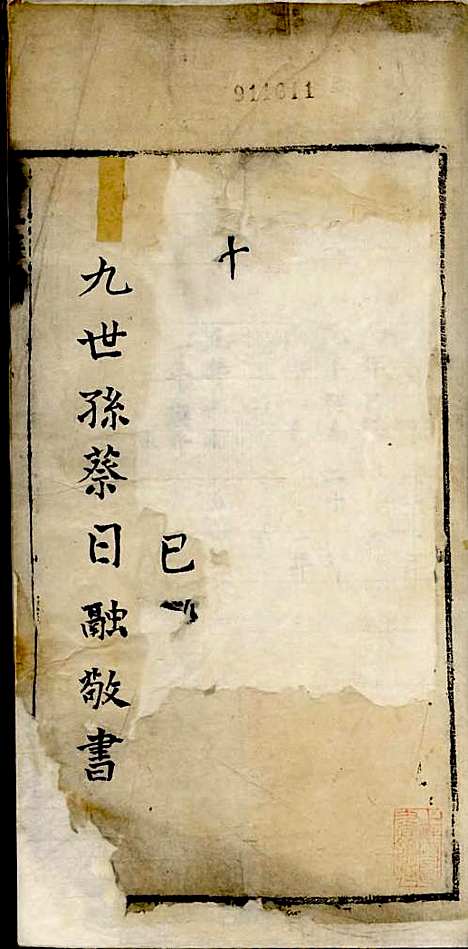 911611
十
巳
九世孫蔡日融敬書